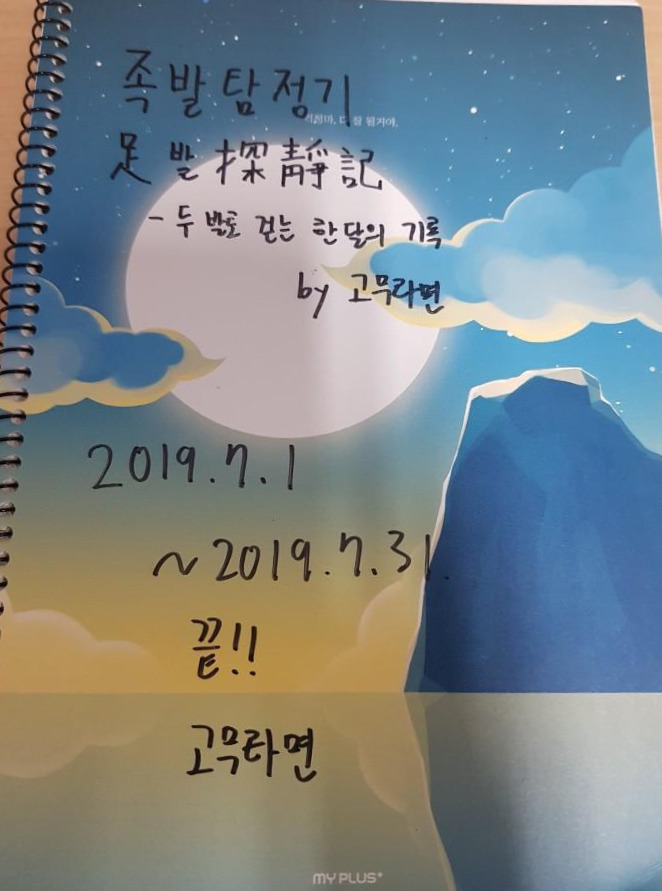 족발탐정기
다 잘 될거야.
足발探靜記
- 두 발로 걷는 한달의 기록
by 고무라면
2019.7.1
~2019.7.31.
끝!!
고무라면
MY PLUS+